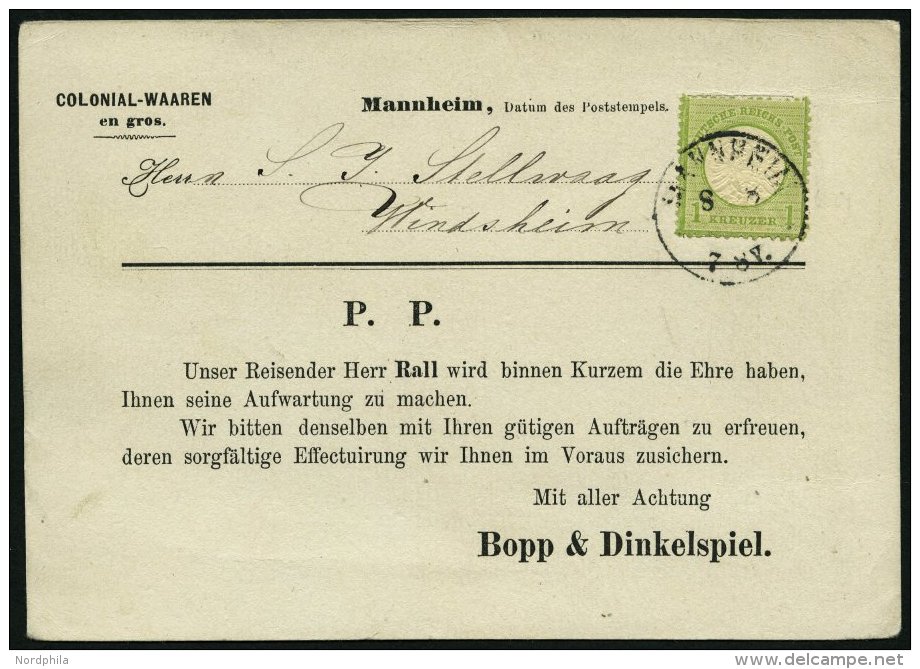 COLONIAL-WAAREN
en gros.
Mannheim, Datum des Poststempels.
DEUTSCHE REICHS-POST
1 KREUZER 1
MANNHEIM
8 5
7 8V.
Herrn S. J. Stellwaag
Windsheim
P. P.
Unser Reisender Herr Rall wird binnen Kurzem die Ehre haben,
Ihnen seine Aufwartung zu machen.
Wir bitten denselben mit Ihren gütigen Aufträgen zu erfreuen,
deren sorgfältige Effectuirung wir Ihnen im Voraus zusichern.
Mit aller Achtung
Bopp & Dinkelspiel.
Nordphila
www.delcampe.net